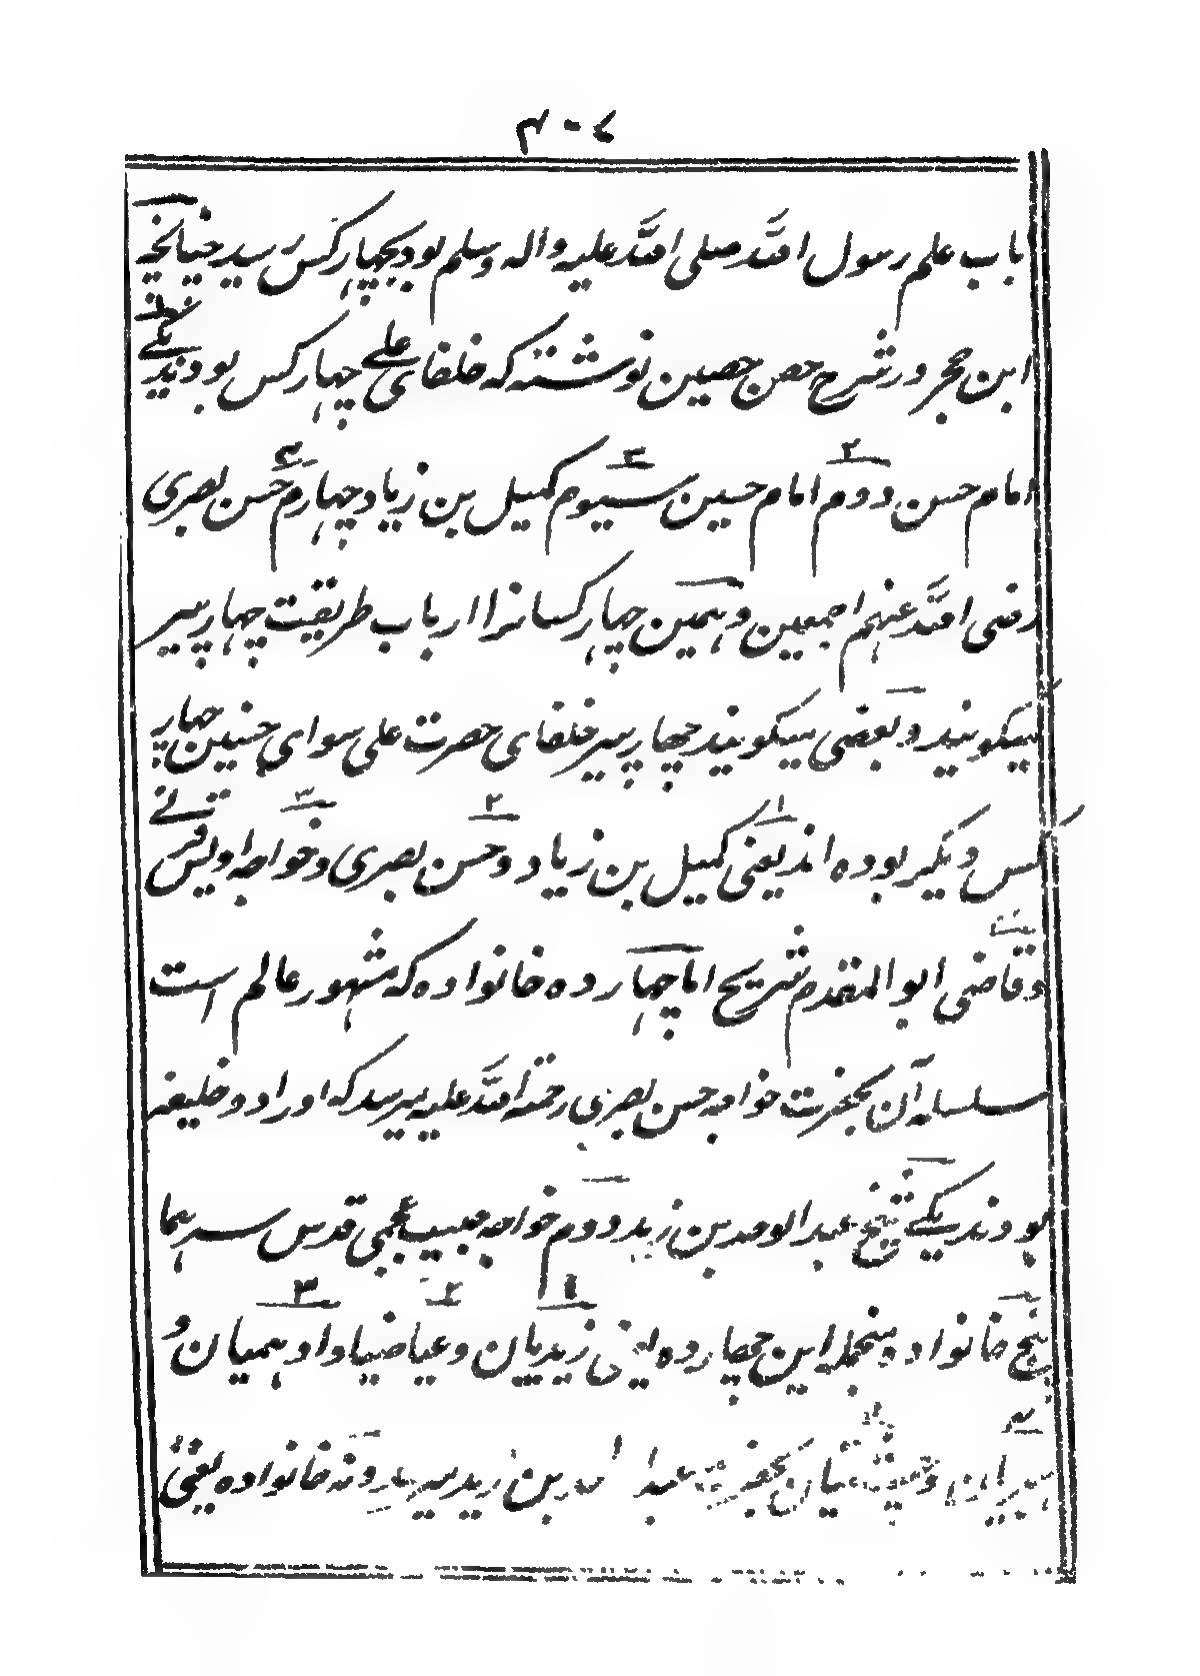 ۴۰۷
باب علم رسول الله صلی الله علیه واله وسلم بود بچهار کس رسید چنانچه
ابن حجر در شرح حصن حصین نوشته که خلفای علی چهار کس بودند یکے
امام حسن دوم امام حسین سیوم کمیل بن زیاد چهارم حسن بصری
رضی الله عنهم اجمعین و همین چهار کسانرا ارباب طریقت چهار پیر
میگویند و بعضی میگویند چهار پیر خلفای حضرت علی سوای حسنین چهار
کس دیگر بوده اند یعنی کمیل بن زیاد و حسن بصری و خواجه اویس قرنے
و قاضی ابو المقدم شریح اما چهارده خانواده که مشهور عالم است
سلسله آن بحضرت خواجه حسن بصری رحمة الله علیه میرسد که او را دو خلیفه
بودند یکے شیخ عبدالواحد بن زید دوم خواجه حبیب عجمی قدس سرهما
پنج خانواده منجمله این چهارده یعنی زیدیان و عیاضیان وادهمیان و
هبیریان و چشتیان بحضرت عبدالواحد بن زید میرسد و نه خانواده یعنی